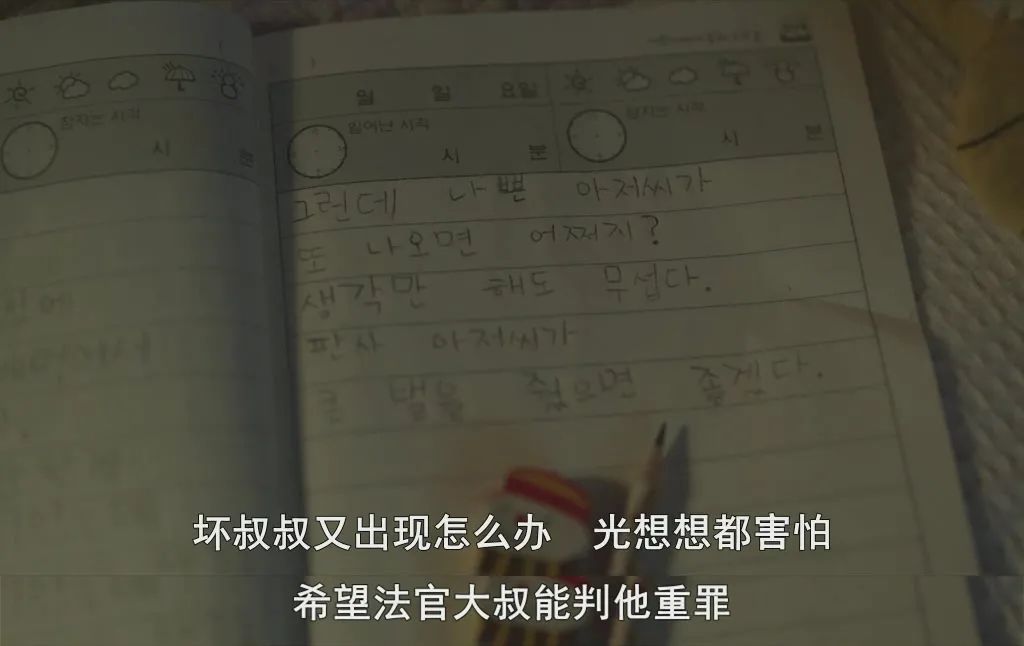 일 일 요일
잠자는 시각
일어난 시각
잠자는 시각
시 분
시 분
시 분
그런데 나쁜 아저씨가
또 나오면 어쩌지?
생각만 해도 무섭다.
판사 아저씨가
큰 댈을 줬으면 좋겠다.
坏叔叔又出现怎么办 光想想都害怕
希望法官大叔能判他重罪